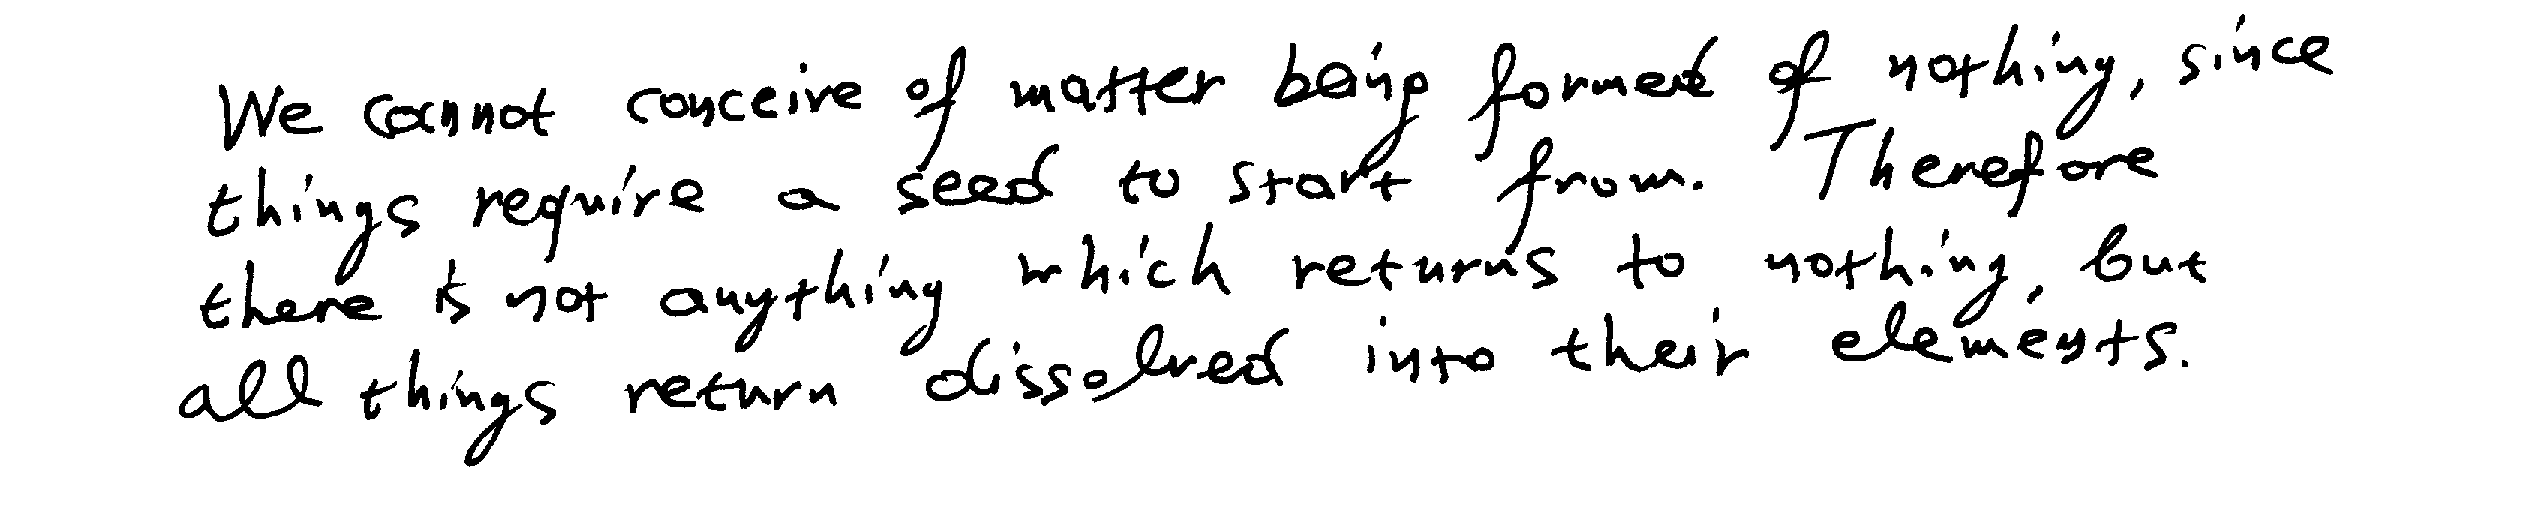 We cannot conceive of matter being formed of nothing, since
things require a seed to start from. Therefore
there is not anything which returns to nothing, but
all things return dissolved into their elements.